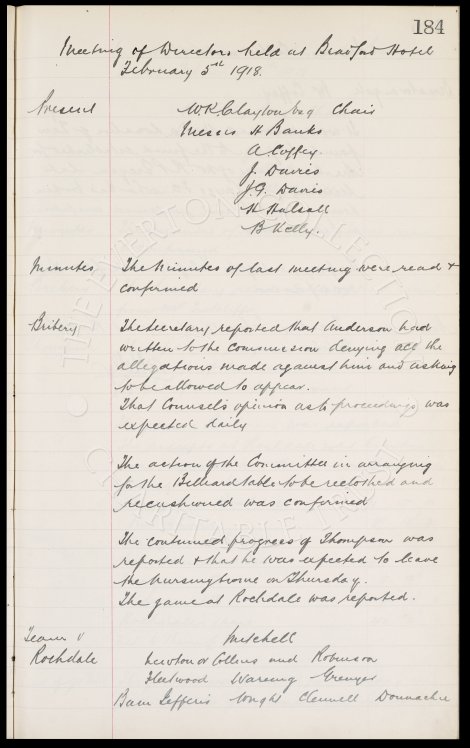 184
Meeting of Directors held at Bradford Hotel
February 5th 1918.
Present W R Clayton Esq Chair
Messrs H Banks
A Coffey.
J. Davies
J. G. Davis
H Halsall
B Kelly.
Minutes The Minutes of last meeting were read &
confirmed
Bribery The Secretary reported that Anderson had
written to the Commission denying all the
allegations made against him and asking
to be allowed to appear.
That Counsel's opinion as to proceedings was
expected daily
The action of the Committee in arranging
for the Billiard table to be reclothed and
recushioned was confirmed
The continued progress of Thompson was
reported & that he was expected to leave
the nursing home on Thursday.
The game at Rochdale was reported.
Team v Mitchell
Rochdale Newton or Collins and Robinson
Fleetwood Wareing Grenyer
Bain Jefferis Wright Clennell Donnachie
© THE EVERTON COLLECTION
CHARITABLE TRUST